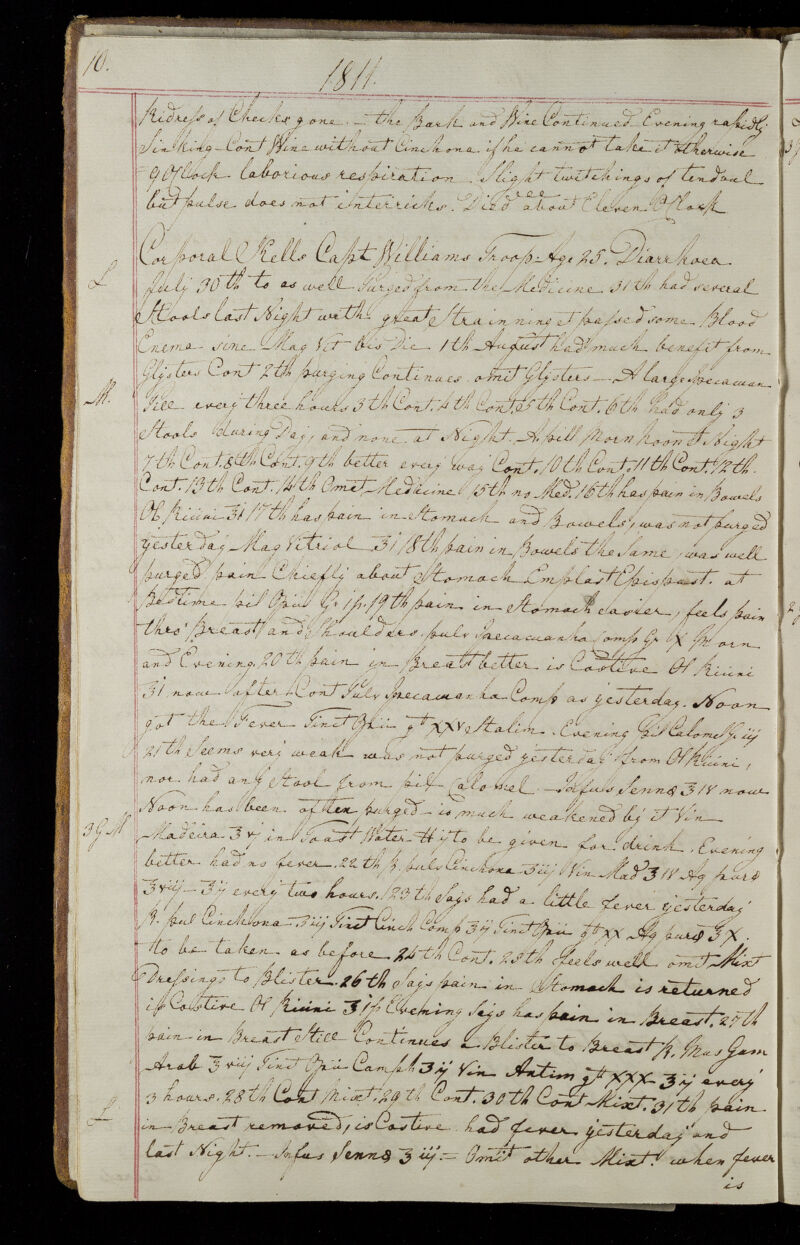 10.
1811
Ridness of Cheeks gone. — the Bark and Wine Continued Evening rapidly
Sinking — Cont Wine without Cinchona if he cannot take it otherwise
9 OClock laborious respiration. Slight twitchings of tendual
but pulse does not interricks. Died about Eleven OClock
Corporal Kells Capt Williams Troop = Age 25. Diarrhoea
L
July 30th to as well Purged from the Medicine 31th had several
Stools last Night with great Strainning et passed some Blood
Enema sine Mag Vit bis Die 1th August had much benefit from
Glysters Cont 2th purging Continues omit Glysters — A large Ipecacuan
M.
Pill every three hours 3th Cont. 4th Cont. 5th Cont. 6th had only 3
Stools during Day, and none at Night. A pill Morn Noon & Night
7th Cont. 8th Cont. 9th better every way Cont. 10th Cont. 11th Cont. 12th
Cont. 13th Cont. 14th Omit Medicine 15th no Med. 16th has pain in Bowels
Ol Ricini ʒi 17th has pain in Stomach and Bowels, was not purged
yesterday Mag Vitriol ʒi 18th pain in Bowels the Same, was well
purged pain Chiefly about Stomach Emplast Epispast. at
Bedtime pil Opii G. ifs. 19th pain in Stomach easier, feels pain
thro' Breast and Shoulders, pulv Ipecacuanha Comp Gr X Morn
and Evening 20th pain in Breast better is Costive Ol Ricini
ʒi now after Cont Pulv Ipecacuanha Comp as yesterday. Noon
got the Fever Tinct Opii gt XXV Statim. Evening Pil Calomel G iij
21th Seems very weak was not purged yesterday from Ol Ricini,
nor had any Stool from pil Calomel. — Infus Senna ʒiv now
Noon has been often purged — is much weakened by it Vin
3 G M
Madeira ʒvj in Toast Water ℔ij to be given for drink. Evening
better had no fever. 22th ℞. pulv Cinchona ʒiij Vin Mad ʒiv Aq pura
ʒviij — ʒij every two hours. 23th Says had a little fever yesterday
℞. pul Cinchona ʒiij Tinct Cinch Comp ʒij Tinct Opii gt XX Aq pura ʒX.
to be taken as before 24th Cont. 25th feels well omit Mixt
Dressings to Blister. 26th Says pain in Stomach is returned
is Costive Ol Ricini ʒifs Evening Says has pain in Breast. 27th
pain in Breast Still Continues a Blister to Breast ℞. Mus Gum
Arab ʒviij Tinct Opii Camph ʒij Vin Antim gt XXX ʒij every
3 hours. 28th Cont Mixt. 29th Cont. 30th Cont Mixt. 31th pain
L
in Breast removed, is Costive had fever yesterday and
last Night. — Infus Senna ʒiij. = Omit other Mixt. when fever
is